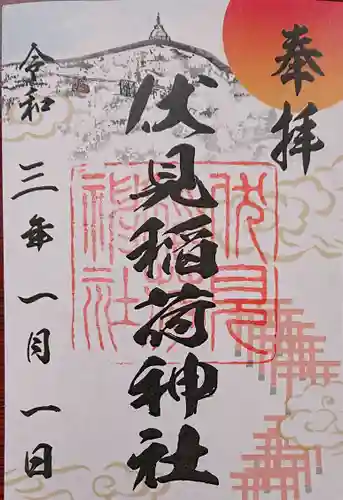 奉拝
伏見稲荷神社
令和三年一月一日
伏見稲荷神社